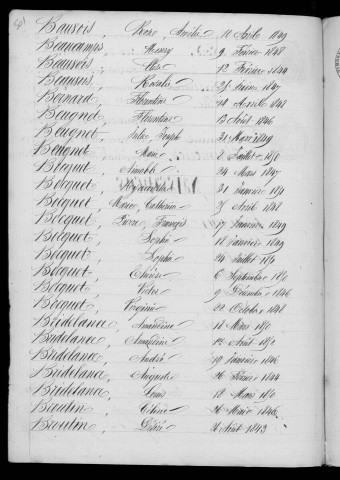 Bausois, Rose Amélie 11 Août 1849
Beaucamps, Henry 9 Février 1848
Beausois, Rose 12 Février 1844
Beausois, Rosalie 25 1847
Bernard, Florentine 14 Avril 1848
Beugnet, Florentine 13 Août 1846
Beugnet, Jules Joseph 31 Mars 1849
Beugnet, Marie 8 Juillet 1850
Bocquet, Aimable 24 Mars 1847
Bocquet, 31 Janvier
Bocquet, Marie Catherine 25 Avril 1848
Bocquet, Pierre François 17 Janvier 1849
Bocquet, Sophie 18 Janvier 1849
Bocquet, Sophie 24 Juillet 1850
Bocquet, 6 Septembre 1850
Bocquet, Victor 9 Décembre 1846
Bocquet, Virginie 22 Octobre 1848
Bridelance, Amandine 18 Mars 1850
Bridelance, Amandine 12 Août 1850
Bridelance, André 19 Janvier 1846
Bridelance, Auguste 26 Février 1844
Bridelance, Louis 18 Mars 1850
Broutin, Céline 26 Mars 1846
Broutin, Désiré 21 Août 1843